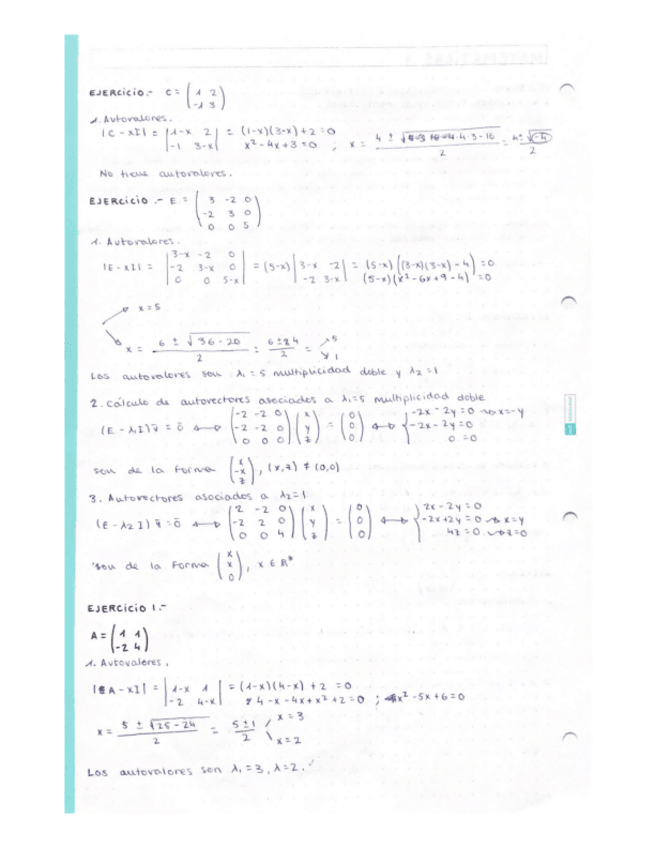 EJERCICIO.- C = (1 2 / -1 3)
1. Autovalores.
|C - xI| = |1-x 2 / -1 3-x| = (1-x)(3-x)+2 = 0
x² - 4x + 3 = 0 ; x = 4 ± √ 4·3-16 / 2 = 4 ± √-4 / 2
No tiene autovalores.
EJERCICIO.- E = (3 -2 0 / -2 3 0 / 0 0 5)
1. Autovalores.
|E - xI| = |3-x -2 0 / -2 3-x 0 / 0 0 5-x| = (5-x) |3-x -2 / -2 3-x| = (5-x)((3-x)(3-x) - 4) = 0
(5-x)(x² - 6x + 9 - 4) = 0
x = 5
x = 6 ± √36 - 20 / 2 = 6 ± 4 / 2 = 5
1
Los autovalores son λ₁ = 5 multiplicidad doble y λ₂ = 1
2. Cálculo de autovectores asociados a λ₁=5 multiplicidad doble
(E - λ₁I) v̄ = ō ↔ (-2 -2 0 / -2 -2 0 / 0 0 0) (x / y / z) = (0 / 0 / 0) ↔ { -2x - 2y = 0 → x = -y
-2x - 2y = 0
0 = 0
son de la forma (x / -x / z), (x,z) ≠ (0,0)
3. Autovectores asociados a λ₂=1
(E - λ₂I) v̄ = ō ↔ (2 -2 0 / -2 2 0 / 0 0 4) (x / y / z) = (0 / 0 / 0) ↔ { 2x - 2y = 0
-2x + 2y = 0 → x = y
4z = 0 → z = 0
son de la forma (x / x / 0), x ∈ ℝ
EJERCICIO 1.-
A = (1 1 / -2 4)
1. Autovalores.
|A - xI| = |1-x 1 / -2 4-x| = (1-x)(4-x) + 2 = 0
4 - x - 4x + x² + 2 = 0 ; x² - 5x + 6 = 0
x = 5 ± √25 - 24 / 2 = 5 ± 1 / 2 x = 3
x = 2
Los autovalores son λ₁ = 3, λ = 2.